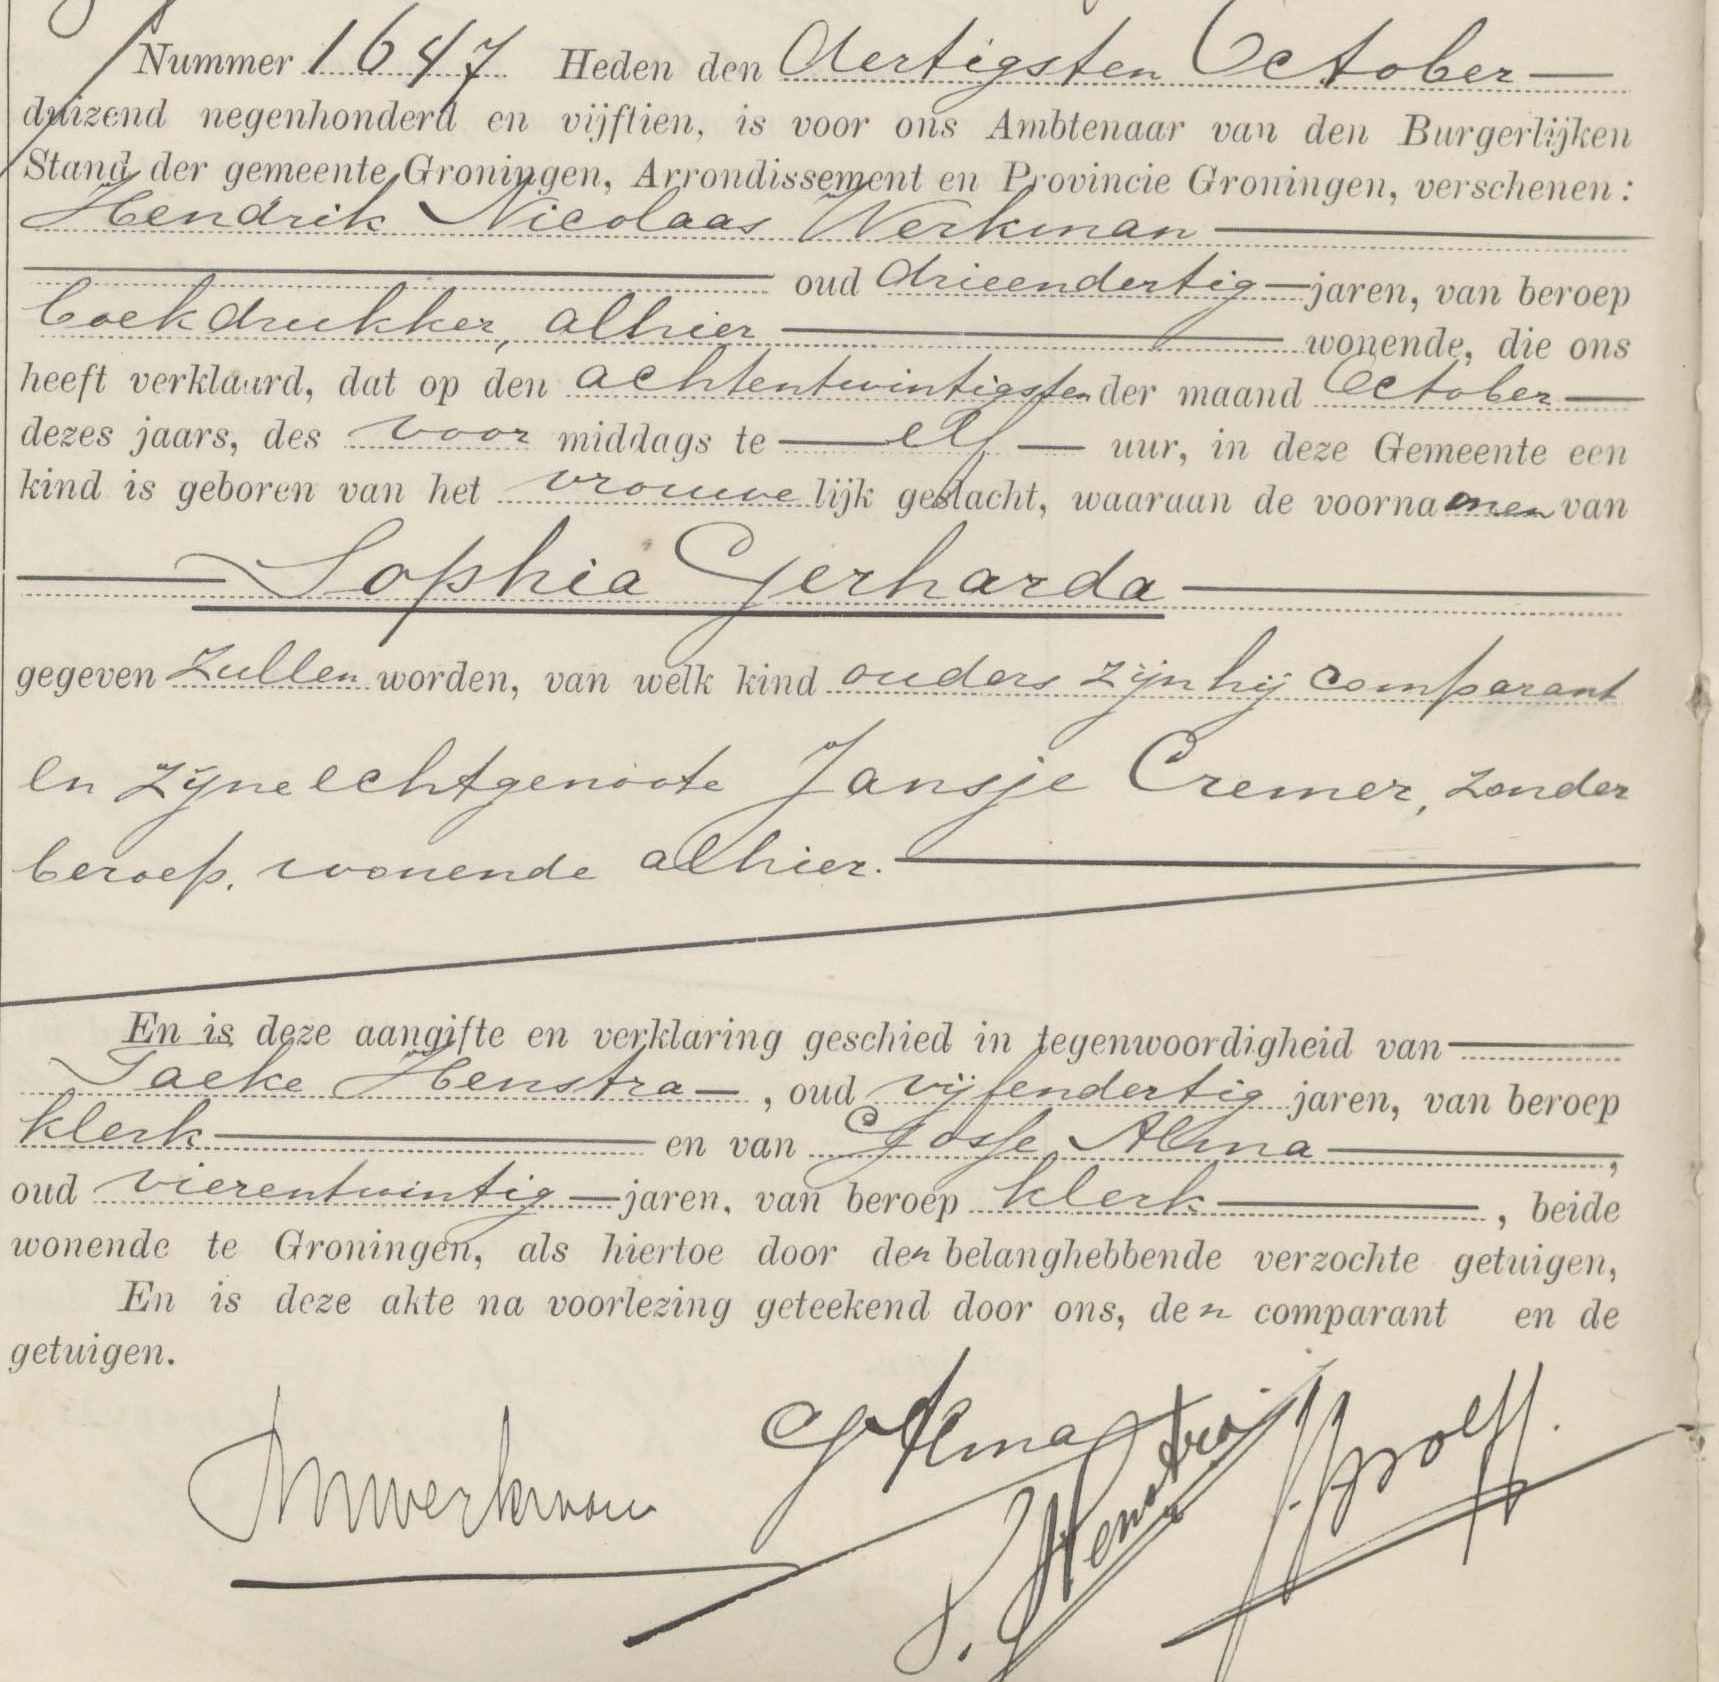 Nummer 1647 Heden den dertigsten October
duizend negenhonderd en vijftien, is voor ons Ambtenaar van den Burgerlijken
Stand der gemeente Groningen, Arrondissement en Provincie Groningen, verschenen:
Hendrik Nicolaas Werkman
oud drieendertig jaren, van beroep
boekdrukker, alhier wonende, die ons
heeft verklaard, dat op den achtentwintigsten der maand October
dezes jaars, des voor middags te elf uur, in deze Gemeente een
kind is geboren van het vrouwelijk geslacht, waaraan de voornamen van
Sophia Gerharda
gegeven zullen worden, van welk kind ouders zijn hij comparant
en zijne echtgenoote Jansje Cremer, zonder
beroep, wonende alhier.
En is deze aangifte en verklaring geschied in tegenwoordigheid van
Taeke Henstra, oud vijfendertig jaren, van beroep
klerk en van Gosse Alma,
oud vierentwintig jaren, van beroep klerk, beide
wonende te Groningen, als hiertoe door den belanghebbende verzochte getuigen,
En is deze akte na voorlezing geteekend door ons, den comparant en de
getuigen.
HNWerkman
G Alma
T. Henstra